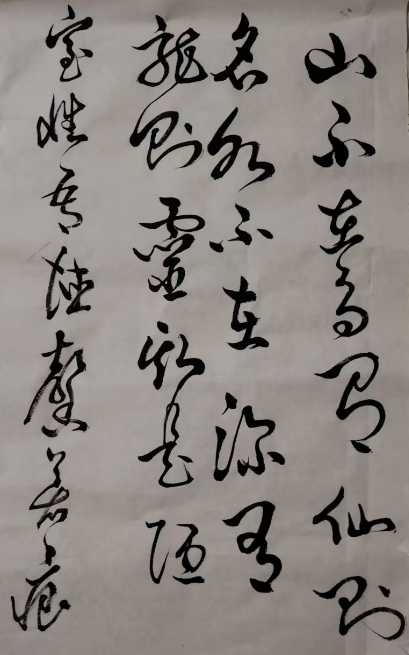 山不在高有仙则
名水不在深有
龍则靈斯是陋
室惟吾德馨苔痕